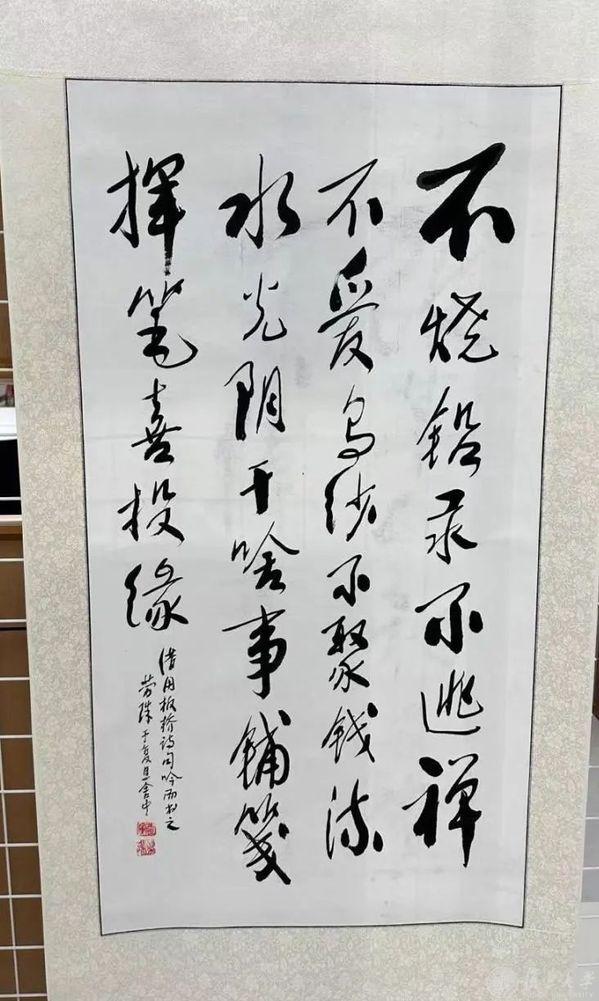 不烧铅汞不逃禅
不爱乌纱不聚钱流
水光阴干啥事铺笺
挥笔喜投缘
借用板桥诗句吟而书之
劳珠于复旦舍中